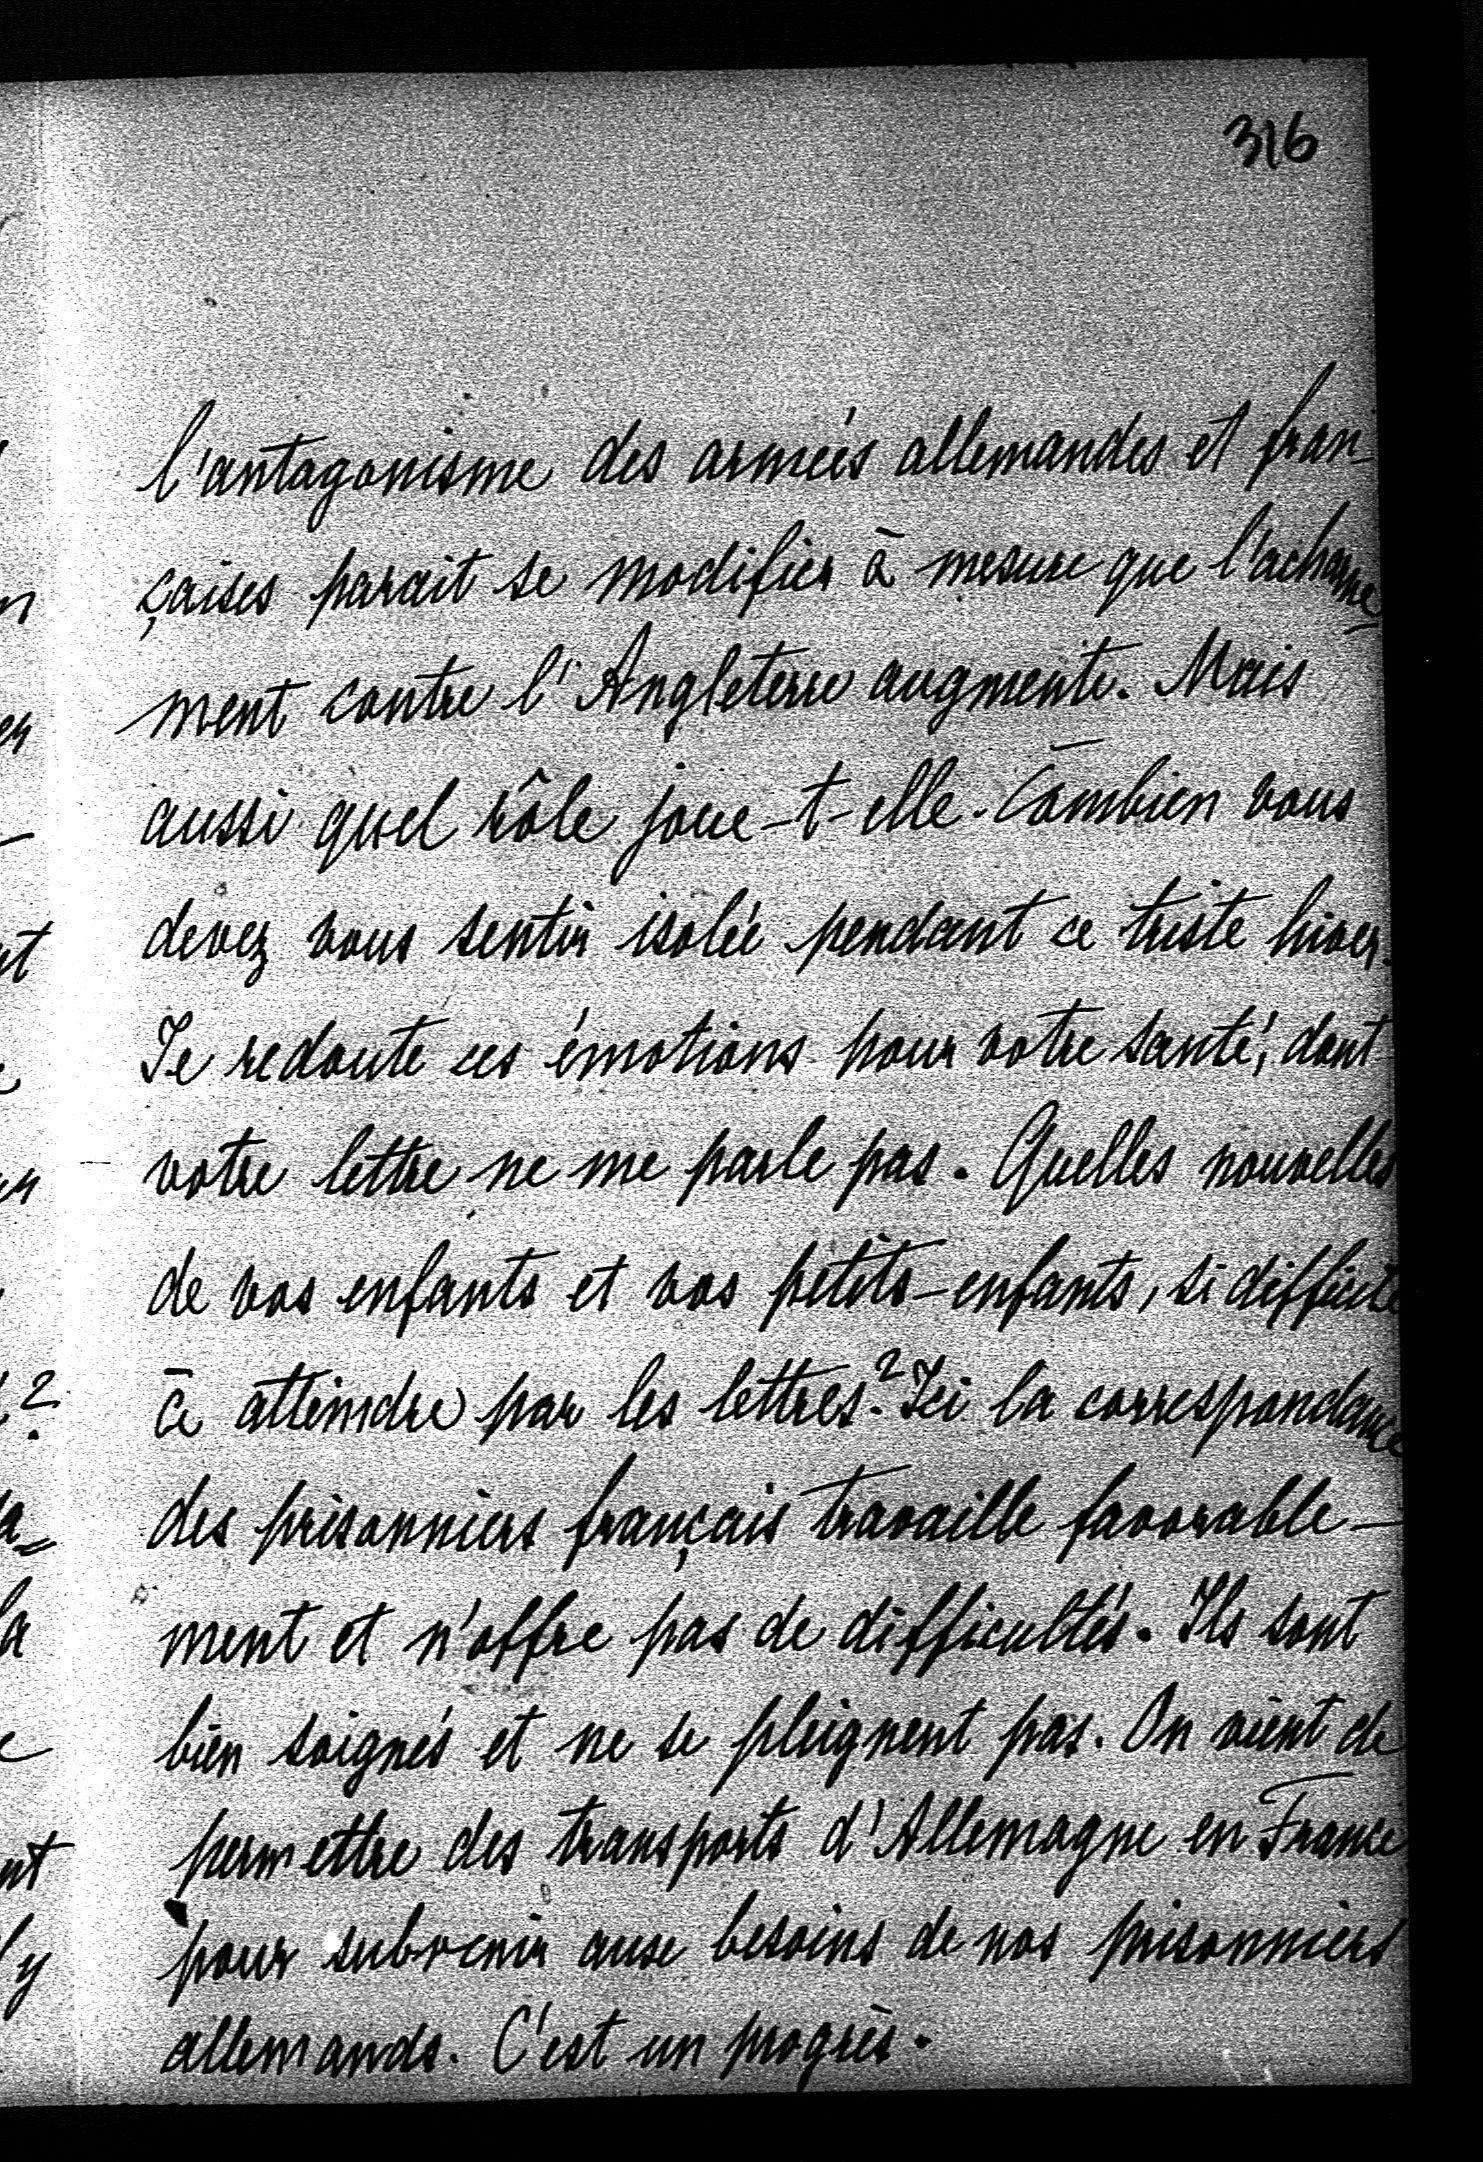 316
l'antagonisme des armées allemandes et fran-
çaises parait se modifier à mesure que l'acharne-
ment contre l'Angleterre augmente. Mais
aussi quel rôle joue-t-elle. Combien vous
devez vous sentir isolée pendant ce triste hiver.
Je redoute ces émotions pour votre santé, dont
votre lettre ne me parle pas. Quelles nouvelles
de vos enfants et vos petits-enfants, si difficile
à atteindre par les lettres? Ici la correspondance
des prisonniers français travaille favorable-
ment et n'offre pas de difficultés. Ils sont
bien soignés et ne se pleignent pas. On vient de
permettre des transports d'Allemagne en France
pour subvenir aux besoins de nos prisonniers
allemands. C'est un progrès.